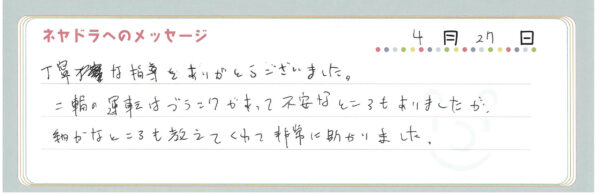 ネヤドラへのメッセージ
4月27日
丁寧な指導をありがとうございました。
二輪の運転はブランクがあって不安なところもありましたが、
細かなところも教えてくれて非常に助かりました。